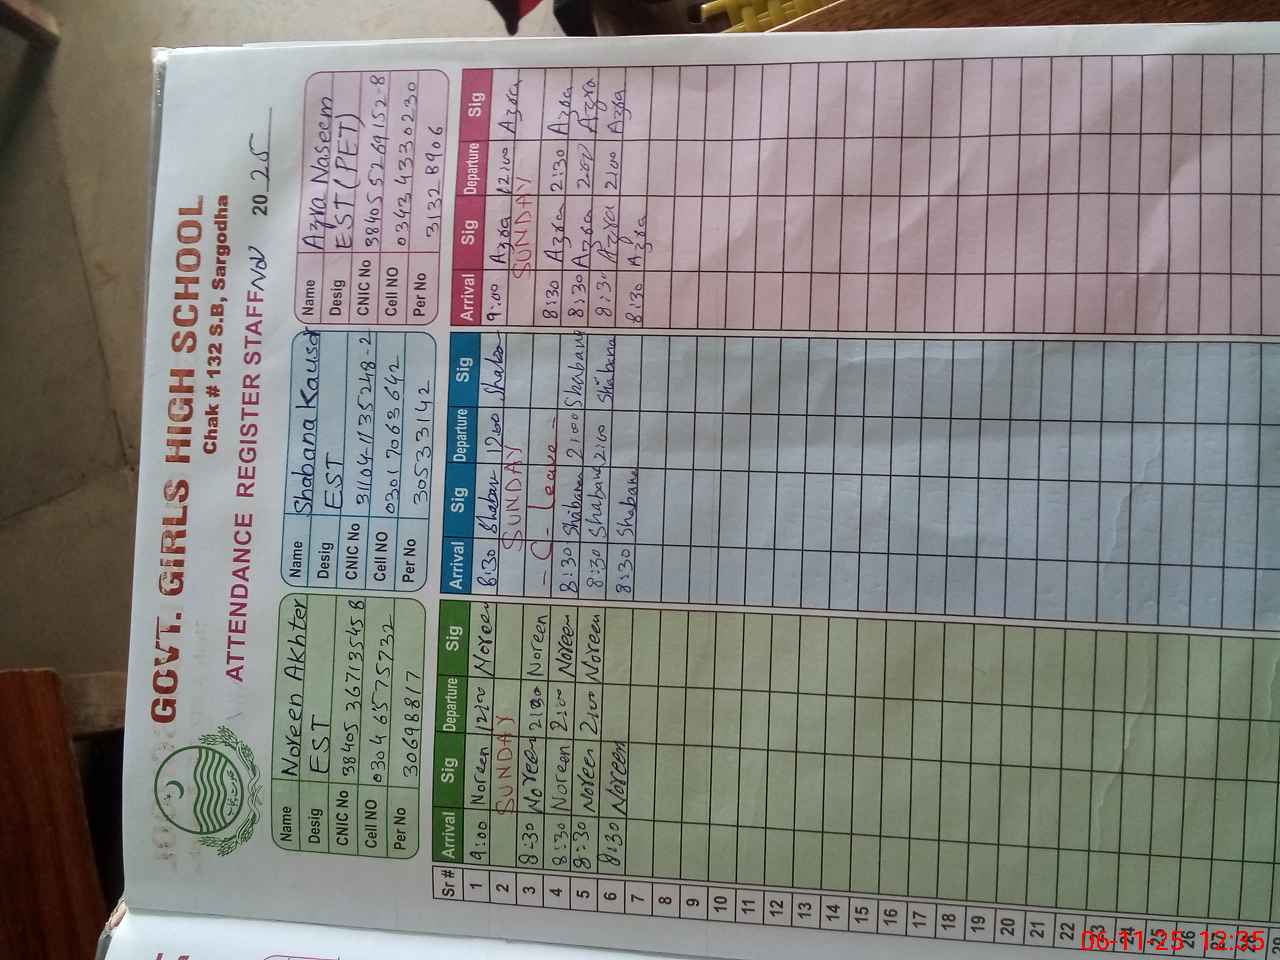 GOVT. GIRLS HIGH SCHOOL
Chak # 132 S.B, Sargodha
ATTENDANCE REGISTER STAFF Nov 2025
Name Noreen Akhter
Desig EST
CNIC No 38405 3671354 5 8
Cell NO 0304 6575732
Per No 30698817
Name Shabana Kausar
Desig EST
CNIC No 31104-1135248-2
Cell NO 0301 7063642
Per No 30533142
Name Azra Naseem
Desig EST (PET)
CNIC No 38405 5269152-8
Cell NO 0343 4330230
Per No 3132 8906
Sr # Arrival Sig Departure Sig Arrival Sig Departure Sig Arrival Sig Departure Sig
1 9:00 Noreen 12:00 Noreen 8:30 Shaban 1200 Shaban 9:00 Azra 12:00 Azra
2 SUNDAY SUNDAY SUNDAY
3 8:30 Noreen 2:30 Noreen - C - Leave - 8:30 Azra 2:30 Azra
4 8:30 Noreen 2:00 Noreen 8:30 Shabana 2:00 Shabana 8:30 Azra 200 Azra
5 8:30 Noreen 2:00 Noreen 8:30 Shabana 2:00 Shabana 8:30 Azra 2:00 Azra
6 8:30 Noreen 8:30 Shabana 8:30 Azra
7
8
9
10
11
12
13
14
15
16
17
18
19
20
21
22
23
24
25
26
27
28
29
06-11-25 12:35